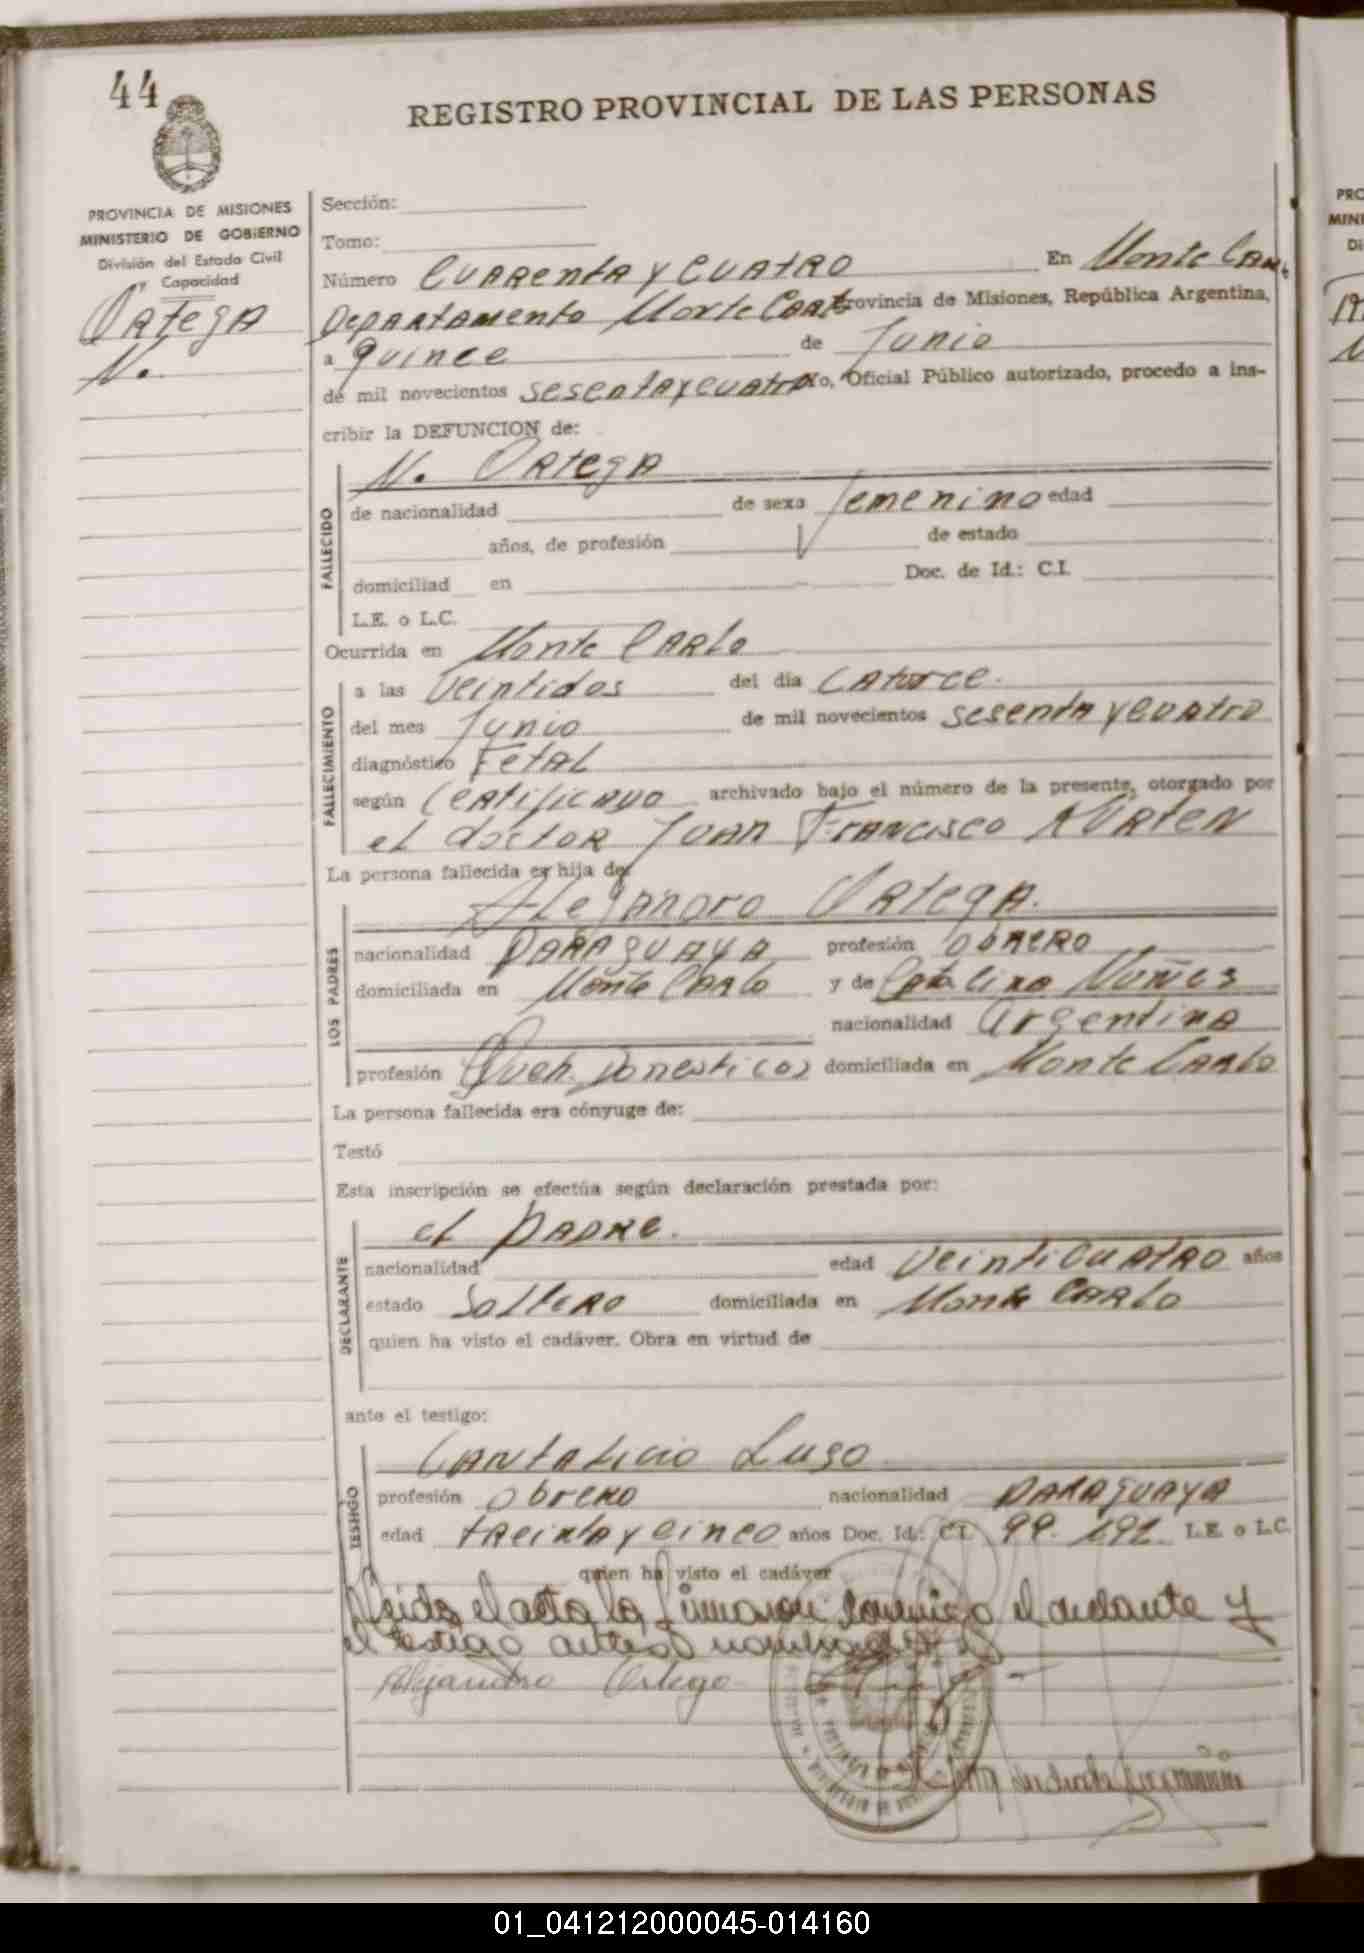 44
REGISTRO PROVINCIAL DE LAS PERSONAS
PROVINCIA DE MISIONES
MINISTERIO DE GOBIERNO
División del Estado Civil
y Capacidad
Ortega
N.
Sección:
Tomo:
Número Cuarenta y cuatro En Monte Car
Departamento Monte Carlo Provincia de Misiones, República Argentina,
a quince de Junio
de mil novecientos sesenta y cuatro yo, Oficial Público autorizado, procedo a ins-
cribir la DEFUNCION de:
FALLECIDO
N. Ortega
de nacionalidad de sexo femenino edad
años, de profesión de estado
domiciliad en Doc. de Id.: C.I.
L.E. o L.C.
Ocurrida en Monte Carlo
FALLECIMIENTO
a las veintidos del día catorce.
del mes Junio de mil novecientos sesenta y cuatro
diagnóstico Fetal
según Certificado archivado bajo el número de la presente, otorgado por
el doctor Juan Francisco Kürten
La persona fallecida es hija de:
LOS PADRES
Alejandro Ortega.
nacionalidad paraguaya profesión obrero
domiciliada en Monte Carlo y de Catalina Nuñes
nacionalidad argentina
profesión Queh. Domesticos domiciliada en Monte Carlo
La persona fallecida era cónyuge de:
Testó
Esta inscripción se efectúa según declaración prestada por:
DECLARANTE
el padre.
nacionalidad edad veinticuatro años
estado soltero domiciliada en Monte Carlo
quien ha visto el cadáver. Obra en virtud de
ante el testigo:
TESTIGO
Cantalicio Lugo
profesión obrero nacionalidad paraguaya
edad treinta y cinco años Doc. Id.: C.I. 99.192 L.E. o L.C.
quien ha visto el cadáver
Leida el acta la firmaron conmigo el declarante y
el testigo antes nombrado
Alejandro Ortega
PRO
MINI
Di
01_041212000045-014160